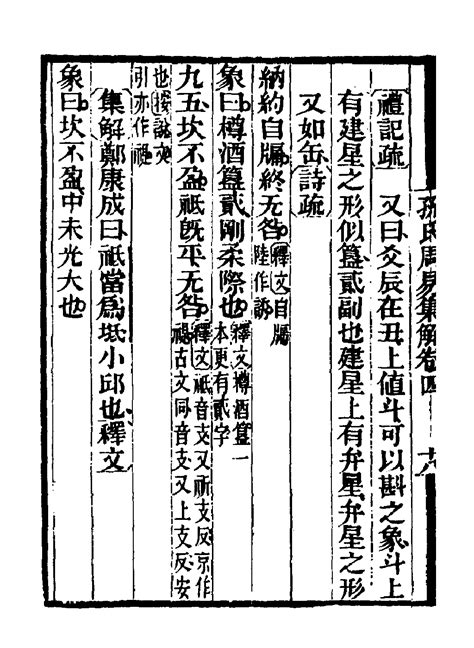 孫氏周易集解卷四 十八
禮記疏 又曰爻辰在丑丑上値斗可以斟之象斗上
有建星之形似簋貳副也建星上有弁星弁星之形
又如缶詩疏
納約自牖終无咎釋文自牖
陸作誘
象曰樽酒簋貳剛柔際也釋文樽酒簋一
本更有貳字
九五坎不盈祗旣平无咎釋文祗音支又祈支反京作
禔古文同音支又上支反安
也按說文
引亦作禔
集解鄭康成曰祗當爲坻小邱也釋文
象曰坎不盈中未光大也